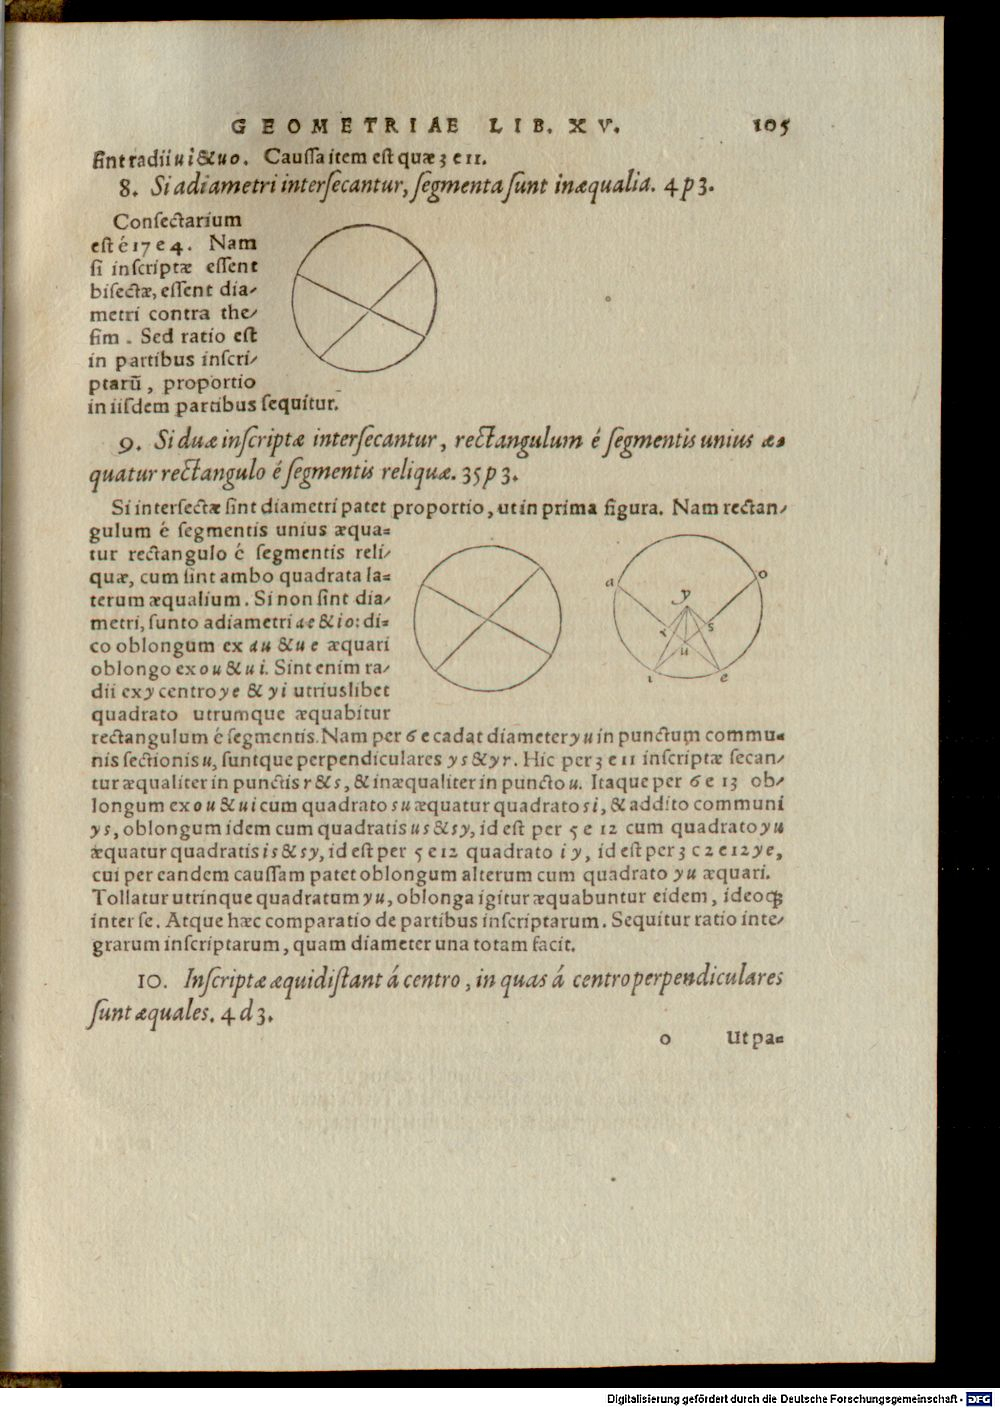 GEOMETRIAE LIB. XV. 105
ſint radii ui & uo. Cauſſa item est quæ 3 e 11.
8. Si adiametri interſecantur, ſegmenta ſunt inæqualia. 4 p 3.
Conſectarium
eſt é 17 e 4. Nam
ſi inſcriptæ eſſent
biſectæ, eſſent dia-
metri contra the-
ſim. Sed ratio eſt
in partibus inſcri-
ptarū, proportio
in iiſdem partibus ſequitur.
9. Si duæ inſcriptæ interſecantur, rectangulum é ſegmentis unius æ-
quatur rectangulo é ſegmentis reliquæ. 35 p 3.
Si interſectæ ſint diametri patet proportio, ut in prima figura. Nam rectan-
gulum é ſegmentis unius æqua-
tur rectangulo é ſegmentis reli-
quæ, cum ſint ambo quadrata la-
terum æqualium. Si non ſint dia-
metri, ſunto adiametri ae & io: di-
co oblongum ex au & ue æquari
oblongo ex ou & ui. Sint enim ra-
dii ex y centro ye & yi utriuslibet
quadrato utrumque æquabitur
a
o
y
r
s
u
i
e
rectangulum é ſegmentis. Nam per 6 e cadat diameter yu in punctum commu-
nis ſectionis u, ſuntque perpendiculares ys & yr. Hic per 3 e 11 inſcriptæ ſecan-
tur æqualiter in punctis r & s, & inæqualiter in puncto u. Itaque per 6 e 13 ob-
longum ex ou & ui cum quadrato su æquatur quadrato si, & addito communi
ys, oblongum idem cum quadratis us & sy, id eſt per 5 e 12 cum quadrato yu
æquatur quadratis is & sy, id eſt per 5 e 12 quadrato iy, id eſt per 3 c 2 e 12 ye,
cui per eandem cauſſam patet oblongum alterum cum quadrato yu æquari.
Tollatur utrinque quadratum yu, oblonga igitur æquabuntur eidem, ideoq́;
inter ſe. Atque hæc comparatio de partibus inſcriptarum. Sequitur ratio inte-
grarum inſcriptarum, quam diameter una totam facit.
10. Inſcriptæ æquidiſtant á centro, in quas á centro perpendiculares
ſunt æquales. 4 d 3.
o Ut pa-
Digitalisierung gefördert durch die Deutsche Forschungsgemeinschaft - DFG